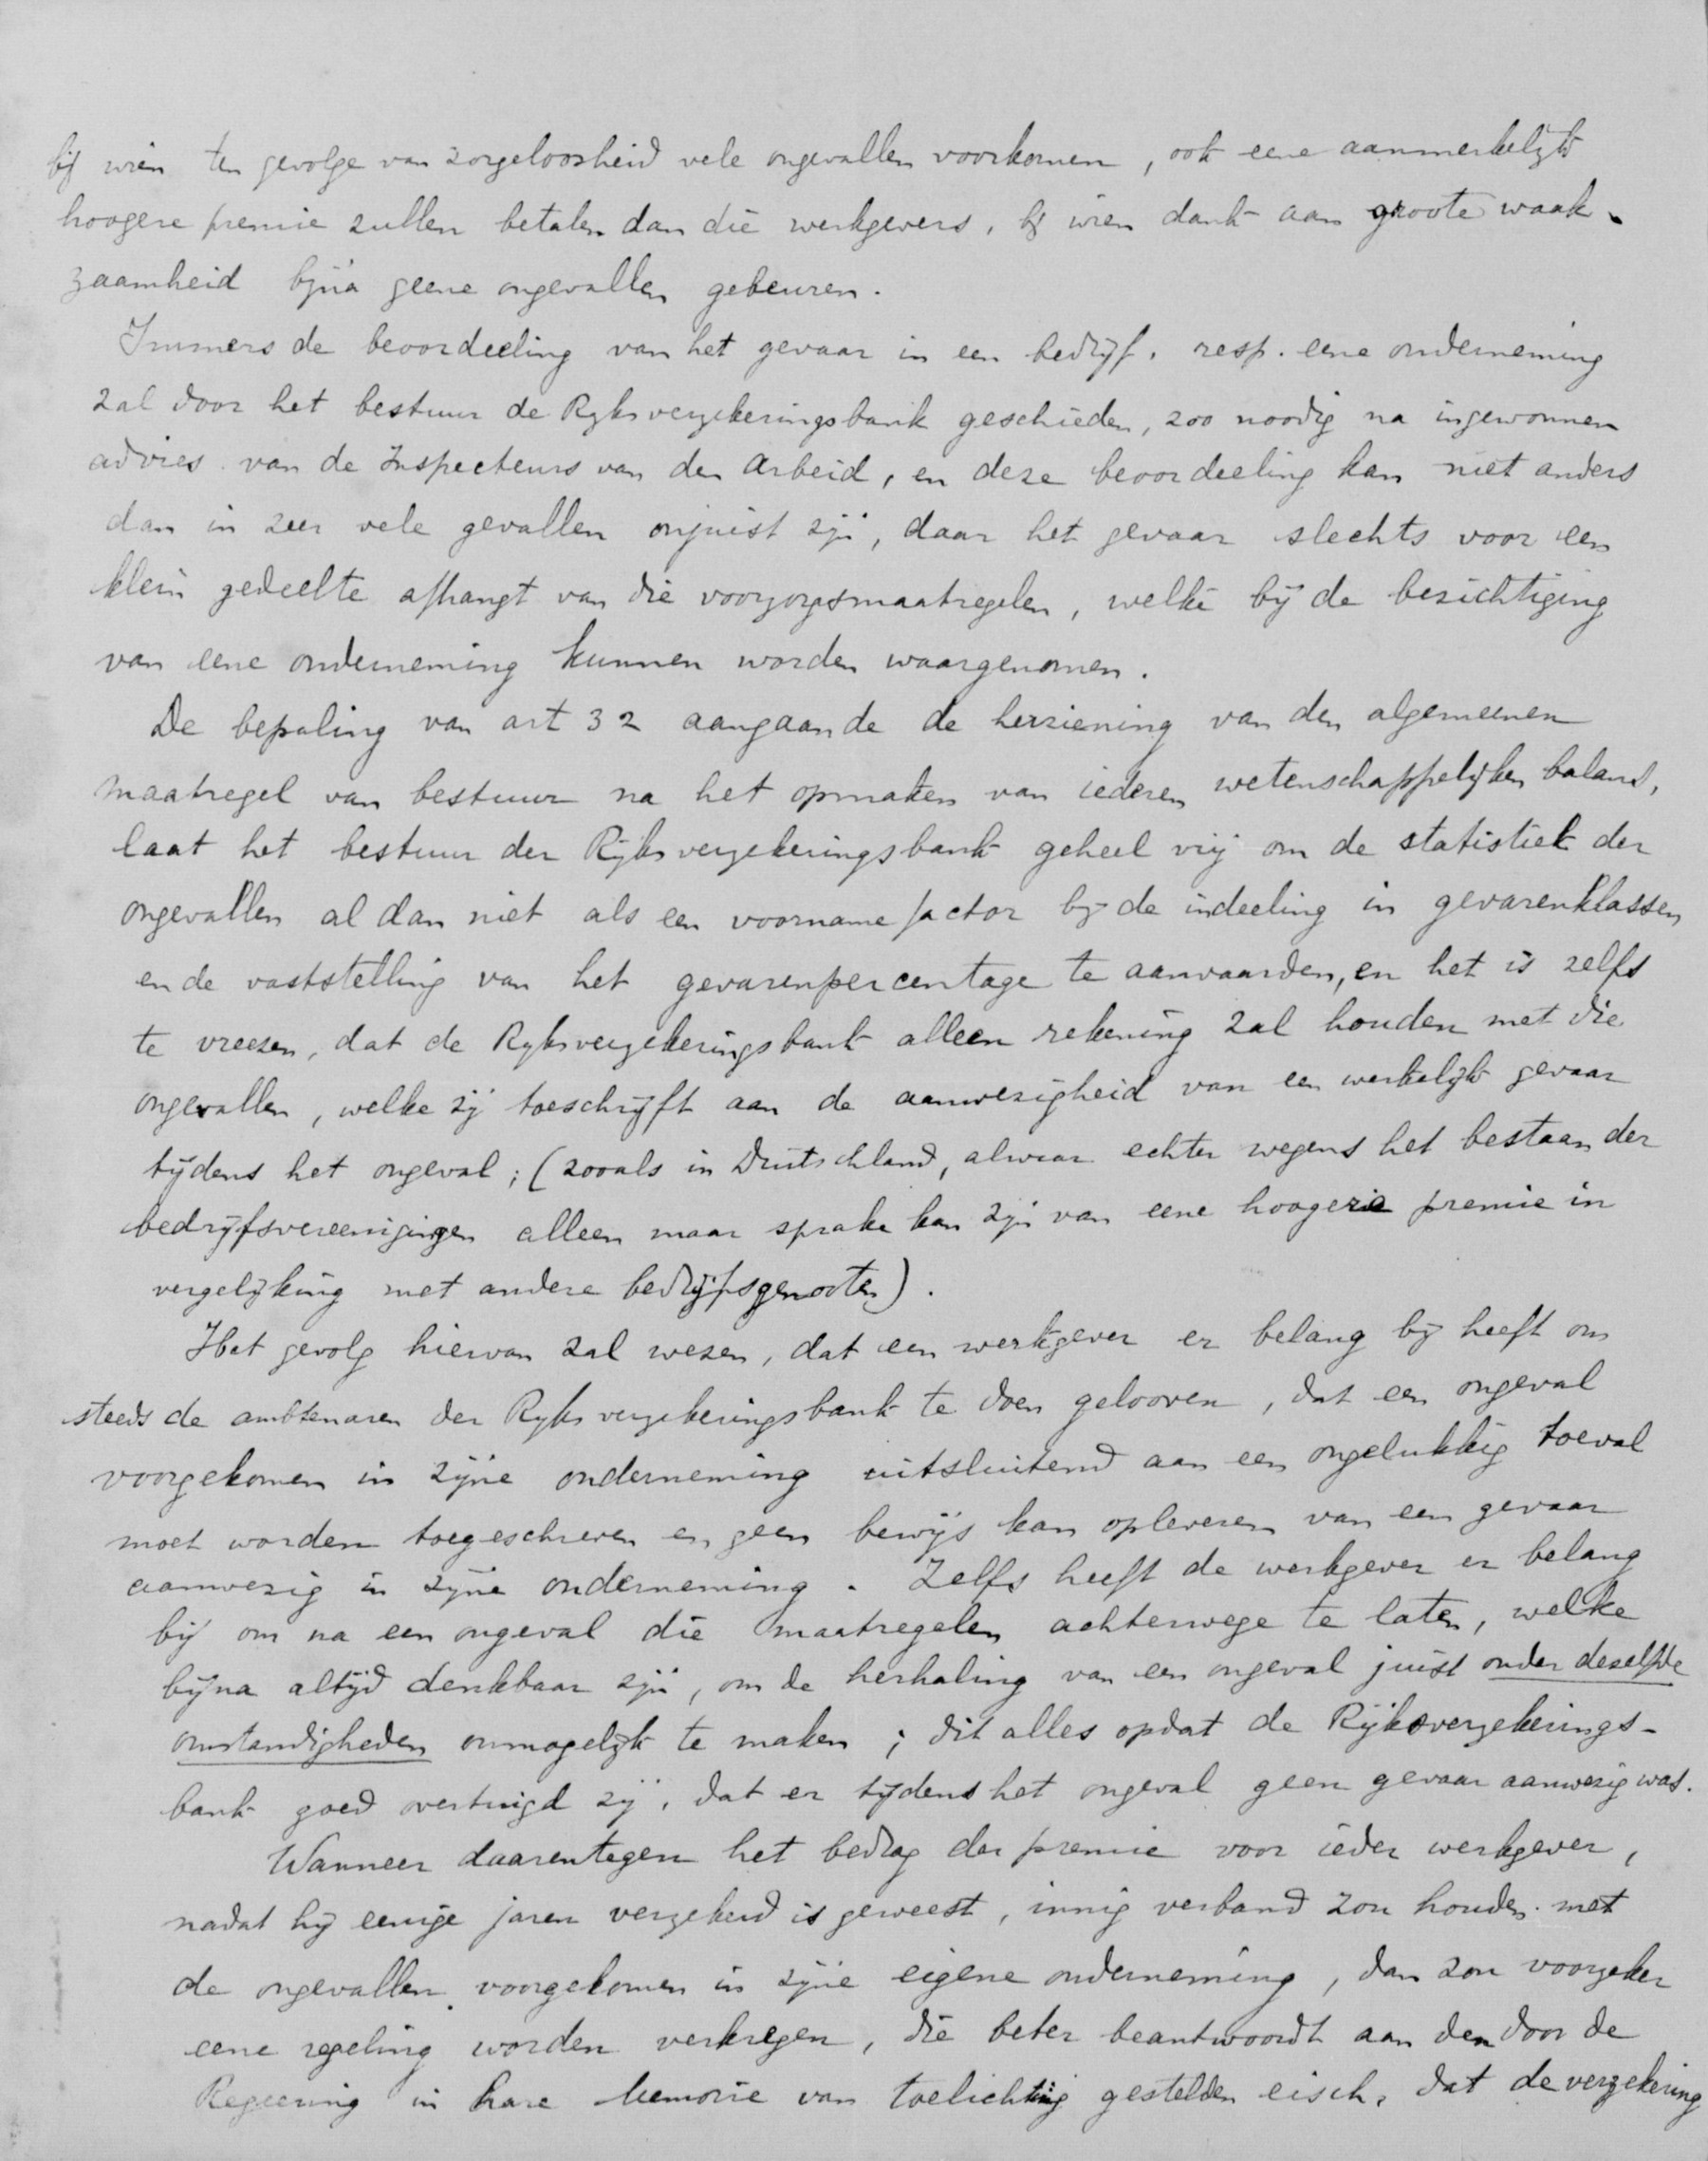 bij wien ten gevolge van zorgeloosheid vele ongevallen voorkomen, ook eene aanmerkelijk
hoogere premie zullen betalen dan die werkgevers, bij wien dank aan groote waak-
zaamheid bijna geene ongevallen gebeuren.
Immers de beoordeeling van het gevaar in een bedrijf, resp. eene onderneming
zal door het bestuur de Rijksverzekeringsbank geschieden, zoo noodig na ingewonnen
advies van de Inspecteurs van den Arbeid, en deze beoordeeling kan niet anders
dan in zeer vele gevallen onjuist zijn, daar het gevaar slechts voor een
klein gedeelte afhangt van die voorzorgsmaatregelen, welke bij de bezichtiging
van eene onderneming kunnen worden waargenomen.
De bepaling van art 32 aangaande de herziening van den algemeenen
maatregel van bestuur na het opmaken van iederen wetenschappelijken balans,
laat het bestuur der Rijksverzekeringsbank geheel vrij om de statistiek der
ongevallen al dan niet als een voorname factor bij de indeeling in gevarenklassen
en de vaststelling van het gevarenpercentage te aanvaarden, en het is zelfs
te vreezen, dat de Rijksverzekeringsbank alleen rekening zal houden met die
ongevallen, welke zij toeschrijft aan de aanwezigheid van een werkelijk gevaar
tijdens het ongeval; (zooals in Duitschland, alwaar echter wegens het bestaan der
bedrijfsvereenigingen alleen maar sprake kan zijn van eene hoogere premie in
vergelijking met andere bedrijfsgenooten).
Het gevolg hiervan zal wezen, dat een werkgever er belang bij heeft om
steeds de ambtenaren der Rijksverzekeringsbank te doen gelooven, dat een ongeval
voorgekomen in zijne onderneming uitsluitend aan een ongelukkig toeval
moet worden toegeschreven en geen bewijs kan opleveren van een gevaar
aanwezig in zijne onderneming. Zelfs heeft de werkgever er belang
bij om na een ongeval die maatregelen achterwege te laten, welke
bijna altijd denkbaar zijn, om de herhaling van een ongeval juist onder dezelfde
omstandigheden onmogelijk te maken; dit alles opdat de Rijksverzekerings-
bank goed overtuigd zij, dat er tijdens het ongeval geen gevaar aanwezig was.
Wanneer daarentegen het bedrag der premie voor ieder werkgever,
nadat hij eenige jaren verzekerd is geweest, innig verband zou houden met
de ongevallen voorgekomen in zijne eigene onderneming, dan zou voorzeker
eene regeling worden verkregen, die beter beantwoordt aan den door de
Regeering in hare Memorie van toelichting gestelden eisch, dat de verzekering